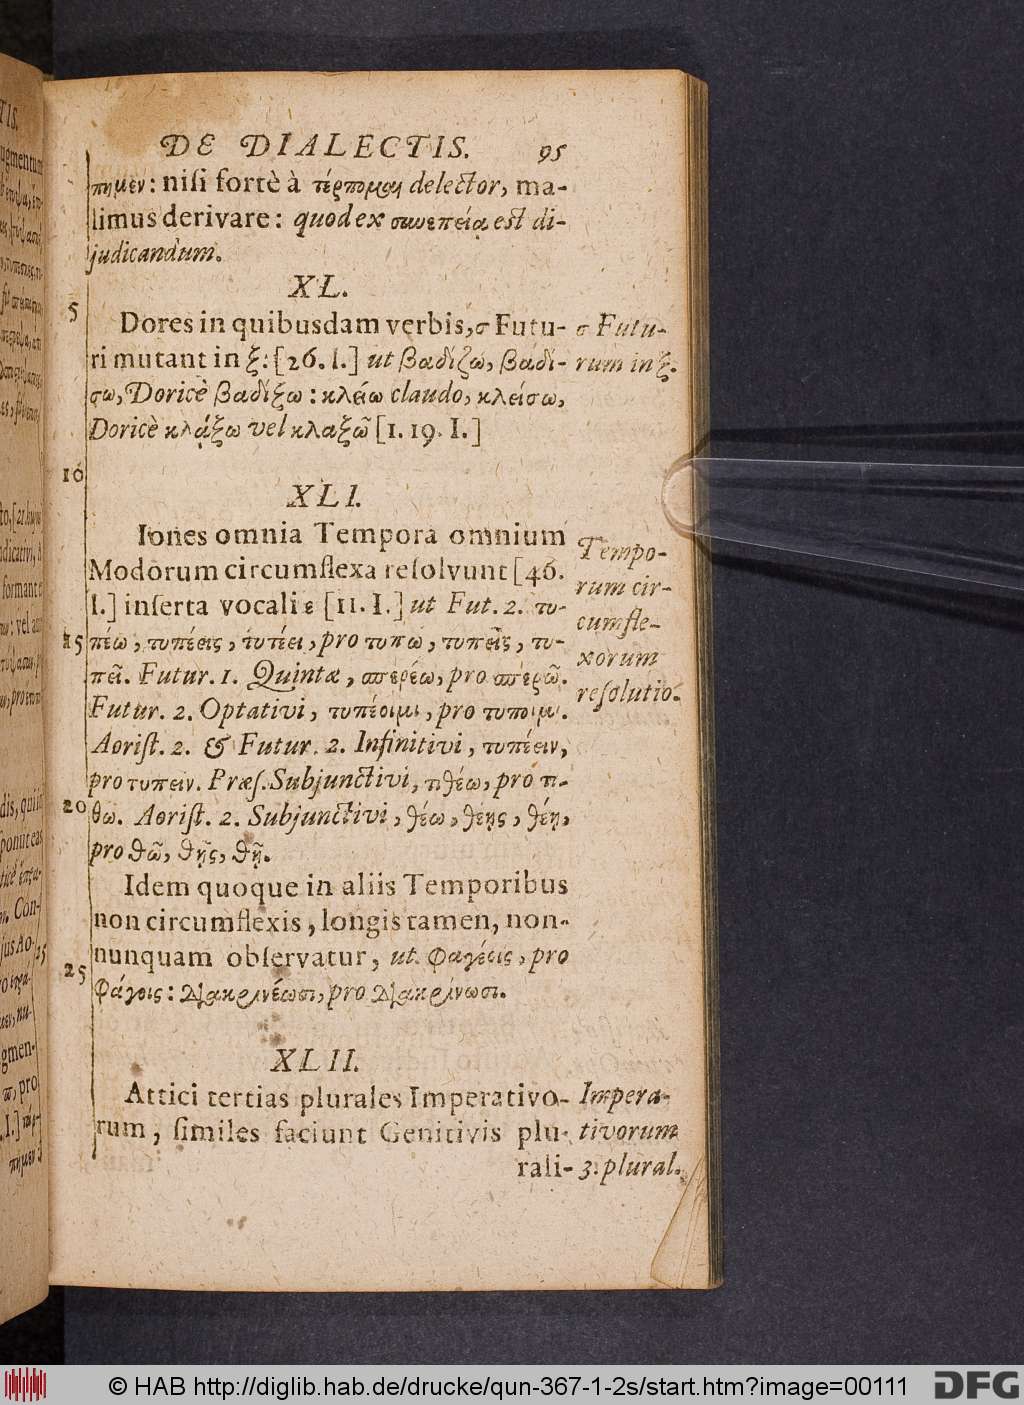 DE DIALECTIS. 95
πημεν: niſi fortè à τέρπομαι delector, ma-
limus derivare: quod ex συνεπείᾳ est di-
judicandum.
XL.
5
Dores in quibusdam verbis, σ Futu-
ri mutant in ξ: [26. I.] ut βαδίζω, βαδί-
σω, Doricè βαδίξω: κλείω claudo, κλείσω,
Doricè κλάξω vel κλαξῶ [I. 19. I.]
σ Futu-
rum in ξ.
10
XLI.
Iones omnia Tempora omnium
Modorum circumflexa reſolvunt [46.
I.] inſerta vocali ε [11. I.] ut Fut. 2. τυ-
15 πέω, τυπέεις, τυπέει, pro τυπῶ, τυπεῖς, τυ-
πεῖ. Futur. 1. Quintæ, σπερέω, pro σπερῶ.
Futur. 2. Optativi, τυπέοιμι, pro τυποιμι.
Aoriſt. 2. & Futur. 2. Infinitivi, τυπέειν,
pro τυπειν. Præſ. Subjunctivi, τιθέω, pro τι-
20 θω. Aoriſt. 2. Subjunctivi, θέω, θέῃς, θέῃ,
pro θῶ, θῇς, θῇ.
Tempo-
rum cir-
cumfle-
xorum
reſolutio.
Idem quoque in aliis Temporibus
non circumflexis, longis tamen, non-
nunquam obſervatur, ut φαγέεις, pro
25 φάγεις: διακρινέωσι, pro διακρίνωσι.
XLII.
Attici tertias plurales Imperativo-
rum, ſimiles faciunt Genitivis plu-
rali-
Impera-
tivorum
3. plural.
© HAB http://diglib.hab.de/drucke/qun-367-1-2s/start.htm?image=00111
DFG